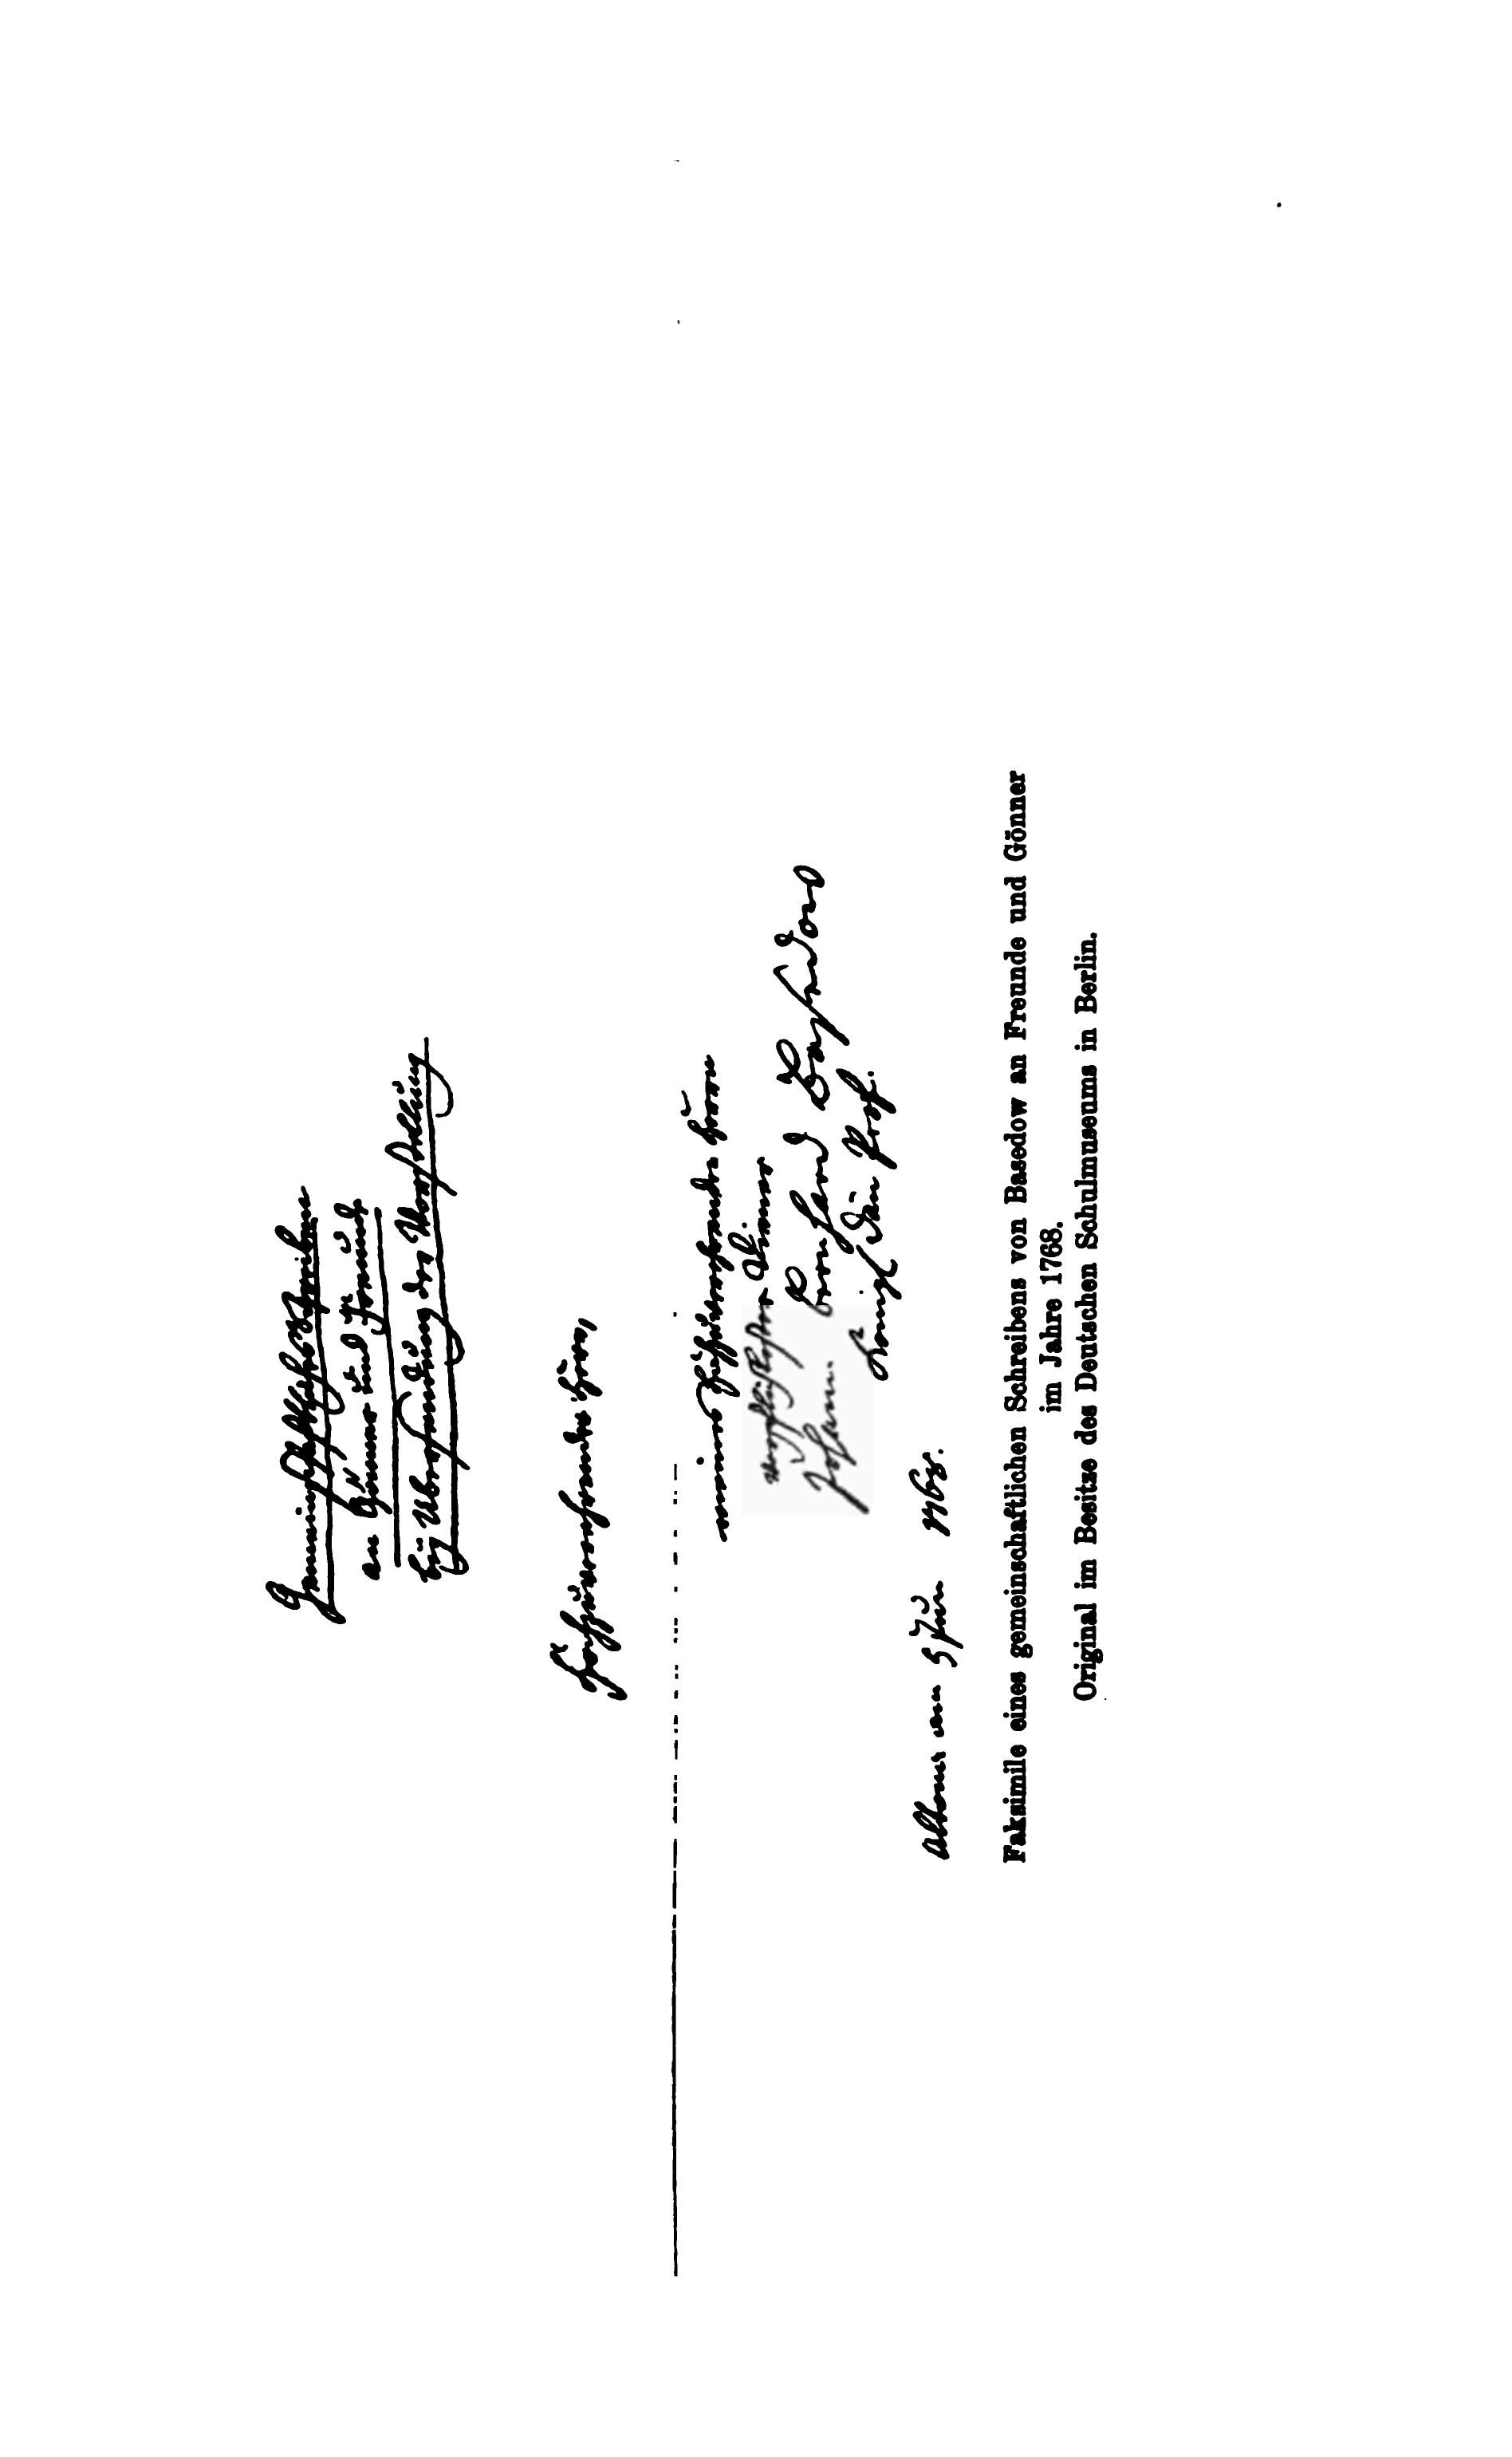 Gemeinschaftliches Schreiben
an Gönner und Freunde
bey Übersendung der Vorstellung
Hochzuverehrender Herr,
meines Hochzuverehrenden Herrn
Diener
Johann Bernhard Basedow
Königl. Dän. Prof.
Altona am 5 Jun 1768.
Faksimile eines gemeinschaftlichen Schreibens von Basedow an Freunde und Gönner
im Jahre 1768.
Original im Besitze des Deutschen Schulmuseums in Berlin.